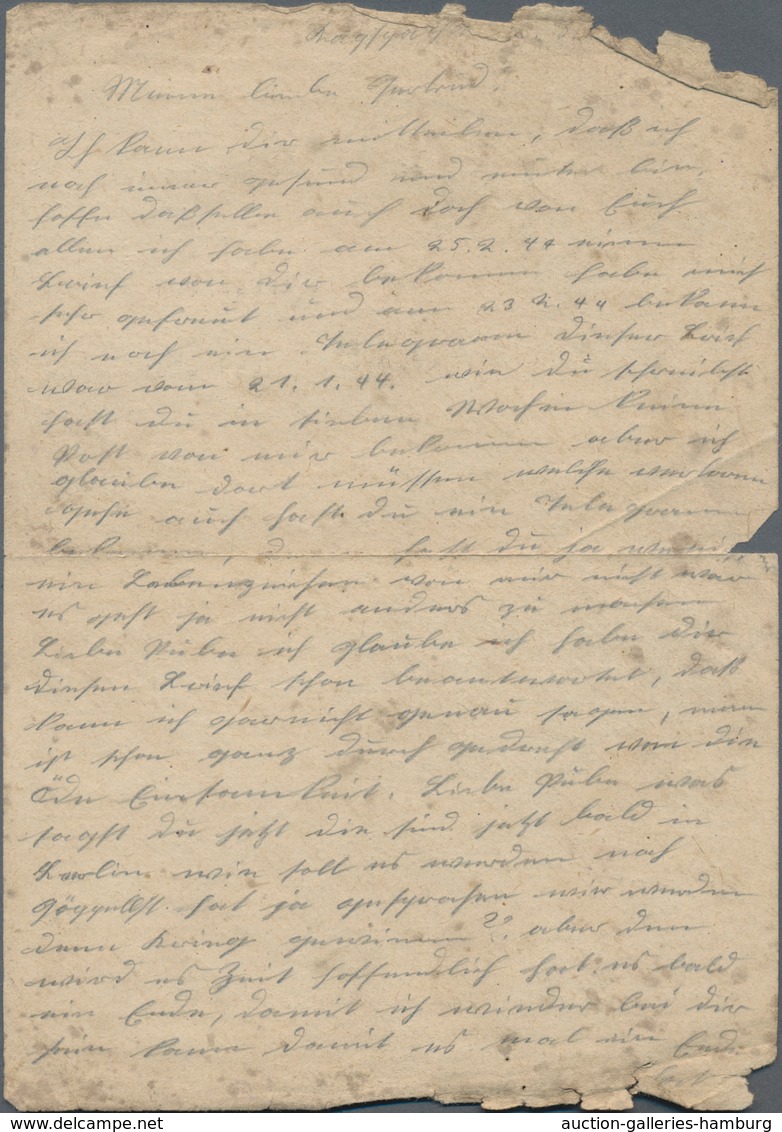 Meine liebe Gertrud!
Ich kann dir mitteilen, daß ich
noch immer gesund und munter bin,
hoffe daßselbe auch doch von Euch
allen ich habe am 25.2.44 einen
Brief von dir bekommen habe mich
sehr gefreut und am 23 2.44 bekam
ich noch ein Telegramm dieser Brief
war vom 21.1.44. wie du schreibst
hast du in sieben Wochen keine
Post von mir bekommen aber ich
glaube dort müssen welche verloren
gehn auch hast du ein Telegramm
bekommen, hast du ja wenig
ein Lebenzeichen von mir nicht war
es geht ja nicht anders zu machen
Liebe Pube ich glaube ich habe dir
diesen Brief schon beantwortet, daß
kann ich garnicht genau sagen, man
ist schon ganz durch gedreht von die
Öde Einsamkeit. Liebe Pube was
sagst du jetzt die sind jetzt bald in
Berlin wie soll es werden noch
Göppelst hat ja gesprochen wir werden
denn Krieg gewinnen?? aber dem
wird es Zeit hoffendlich hat es bald
ein Ende, damit ich wieder bei dir
sein kann damit es mal ein Ende
auction-galleries-hamburg